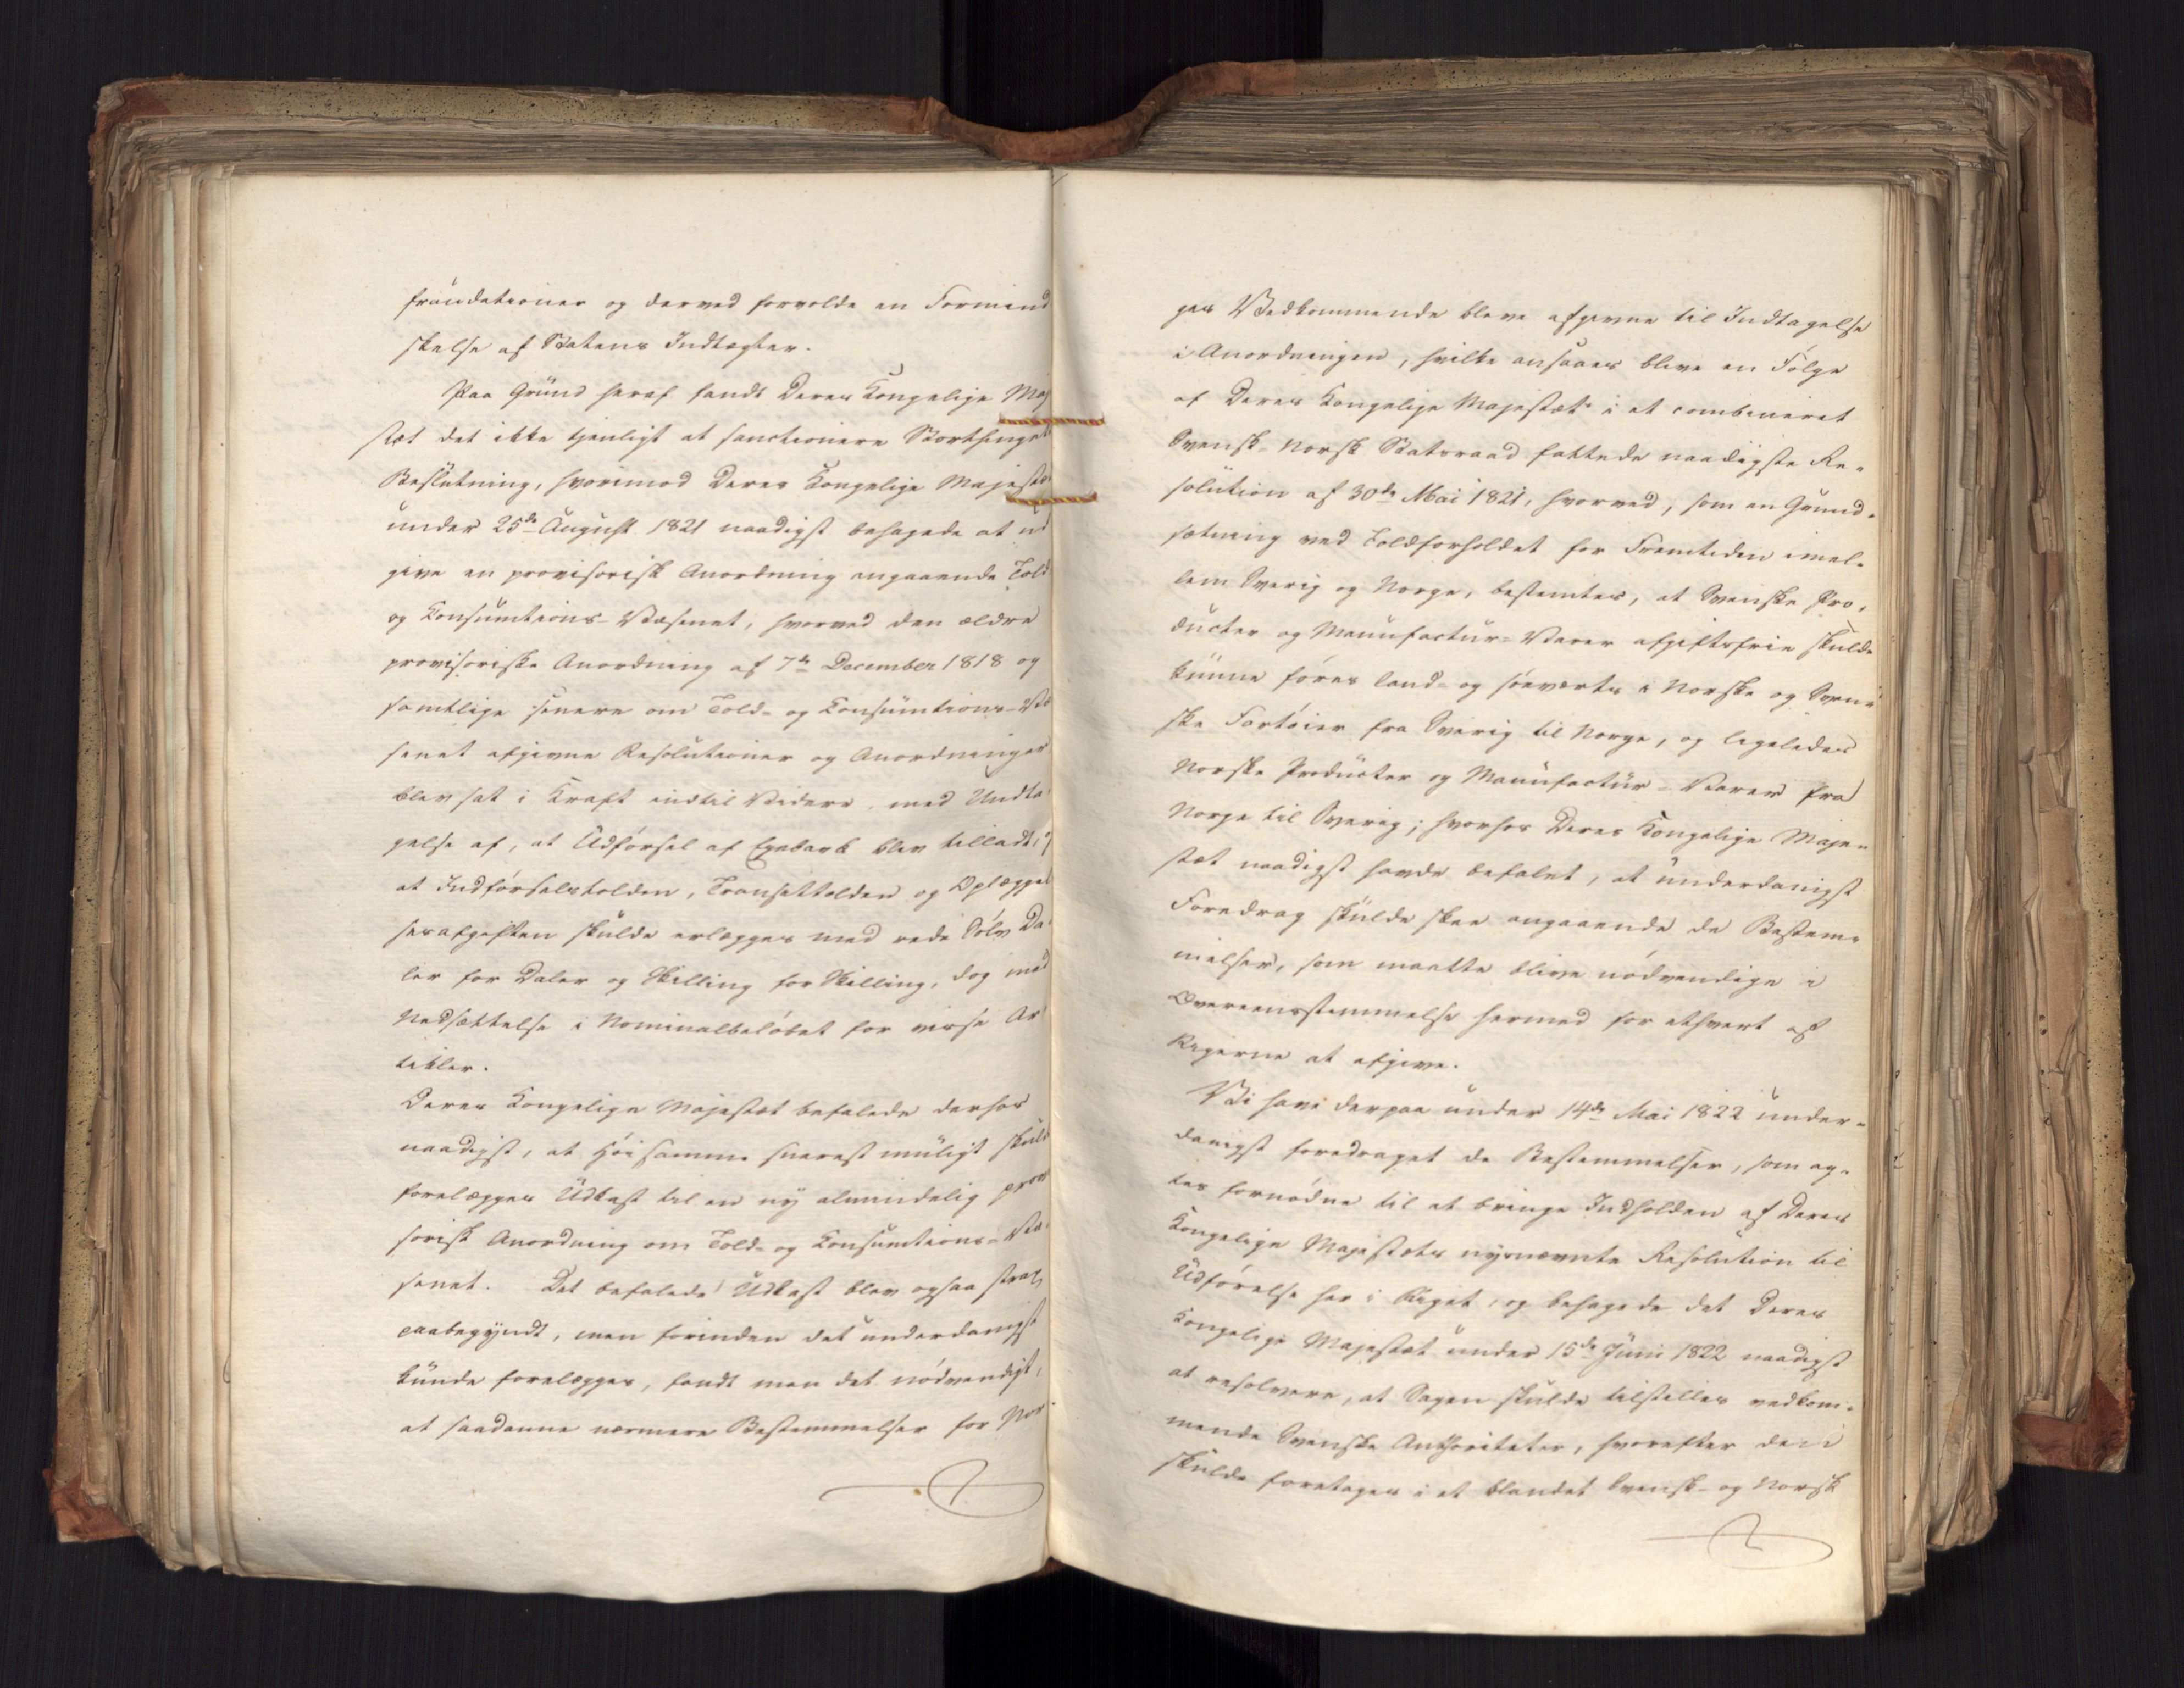 fraudationer og derved forvolde en Formind
skelse af Statens Indtægter.
Paa Grund heraf fandt Deres Kongelige Maj
stæt det ikke tjenligt at sanctionere Storthingets
Beslutning, hvorimod Deres Kongelige Majestæ
under 25de August 1821 naadigst behagede at ud
give en provisorisk Anordning angaaende Told
og Consumtions-Væsenet, hvorved den ældre
provisoriske Anordning af 7de December 1818 og
samtlige senere om Told- og Consumtions-Væ
senet afgivne Resolutioner og Anordninger
blev sat i Kraft indtil Videre, med Undta
gelse af, at Udførsel af Egebark blev tilladt,
at Indførselstolden, Transittolden og Oplæggel
sesafgiften skulde erlægges med rede Sølv Da
ler for Daler og Skilling for Skilling, dog med
Nedsættelse i Nominalbeløbet for visse Ar
tikler.
Deres Kongelige Majestæt befalede derhos
naadigst, at Høisamme snarest muligt skuld
forelægges Udkast til en ny almindelig provi
sorisk Anordning om Told- og Consumtions-Væ
senet. Det befalede Udkast blev ogsaa strax
paabegyndt, men forinden det underdanigst
kunde forelægges, fandt man det nødvendigt,
at saadanne nærmere Bestemmelser for Nor
ges Vedkommende bleve afgivne til Indtagelse
i Anordningen, hvilke ansaaes blive en Følge
af Deres Kongelige Majestæts i et combineret
Svensk-Norsk Statsraad fattede naadigste Re-
solution af 30de Mai 1821, hvorved, som en Grund-
sætning ved Toldforholdet for Fremtiden imel-
lem Sverig og Norge, bestemtes, at Svenske Pro-
ducter og Manufactur-Varer afgiftsfrie skulde
kunne føres land- og søeværts i Norske og Sven-
ske Fartøier fra Sverig til Norge, og ligeledes
Norske Producter og Manufactur-Varer fra
Norge til Sverig; hvorhos Deres Kongelige Maje-
stæt naadigst havde befalet, at underdanigst
Foredrag skulde skee angaaende de Bestem-
melser, som maatte blive nødvendige i
Overeensstemmelse hermed for ethvert af
Rigerne at afgive.
Vi have derpaa under 14de Mai 1822 under-
danigst foredraget de Bestemmelser, som ag-
tes fornødne til at bringe Indholden af Deres
Kongelige Majestæts nysnævnte Resolution til
Udførelse her i Riget, og behagede det Deres
Kongelige Majestæt under 15de Juni 1822 naadigst
at resolvere, at Sagen skulde tilstilles vedkom-
mende Svenske Authoriteter, hvorefter den
skulde foretages i et blandet Svensk- og Norsk